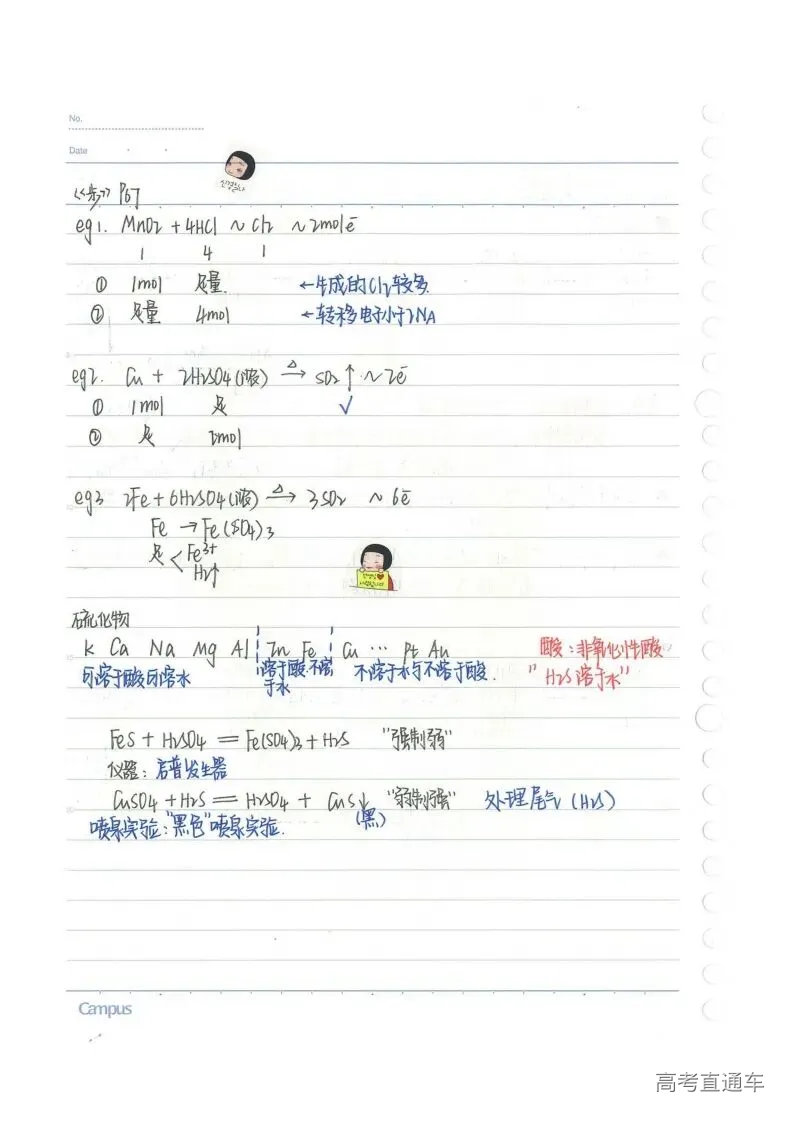 No.
Date
《步》P67
eg1. MnO2 + 4HCl ~ Cl2 ~ 2mole⁻
1 4 1
① 1mol 足量. ←生成的Cl2较多
② 足量 4mol ←转移电子小于2NA
eg2. Cu + 2H2SO4(浓) —△→ SO2↑ ~ 2e⁻
① 1mol 足 √
② 足 2mol
eg3 2Fe + 6H2SO4(浓) —△→ 3SO2 ~ 6e⁻
Fe → Fe(SO4)3
足 < Fe³⁺
H2↑
硫化物
K Ca Na Mg Al Zn Fe Cu … Pt Au 酸:非氧化性酸
可溶于酸可溶水 溶于酸.不溶于水 不溶于水与不溶于酸. "H2S溶于水"
FeS + H2SO4 = Fe(SO4)3 + H2S "强制弱"
仪器: 启普发生器
CuSO4 + H2S = H2SO4 + CuS↓ "弱制强" 处理尾气(H2S)
喷泉实验:"黑色"喷泉实验. (黑)
Campus
高考直通车